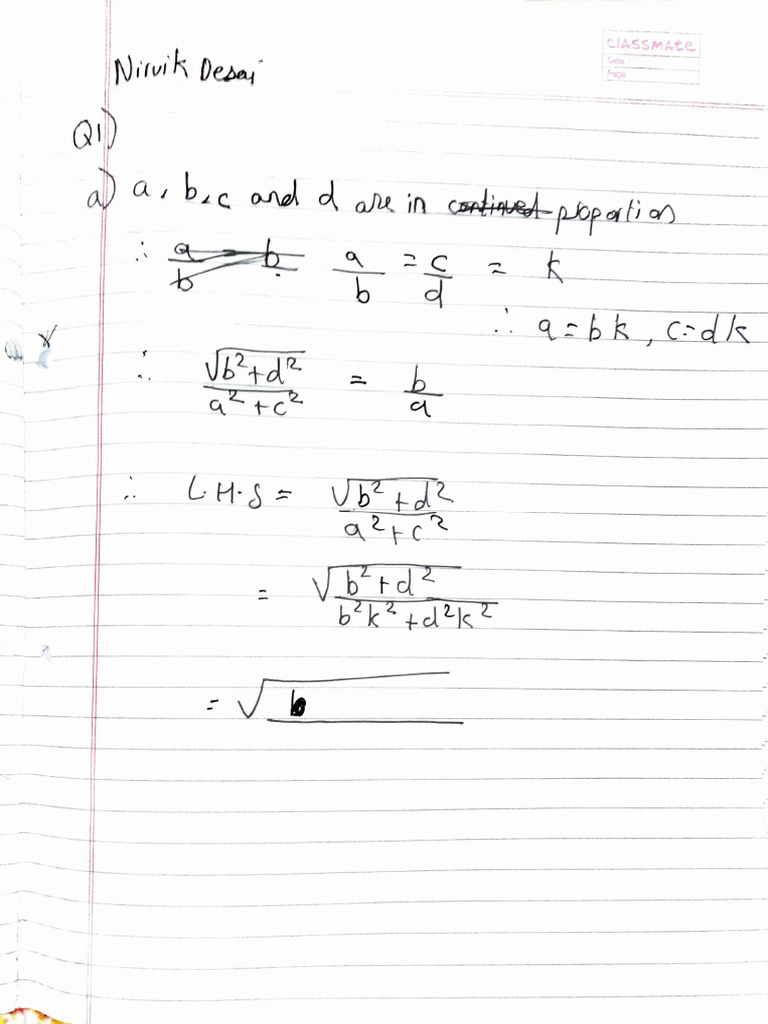 CLASSMATE
Date
Page
Nirvik Desai
Q1)
a) a, b, c and d are in continued proportion
∴ a/b = b a/b = c/d = k
∴ a = bk, c = dk
∴ √b²+d² / a²+c² = b/a
∴ L.H.S = √b²+d² / a²+c²
= √b²+d² / b²k²+d²k²
= √b